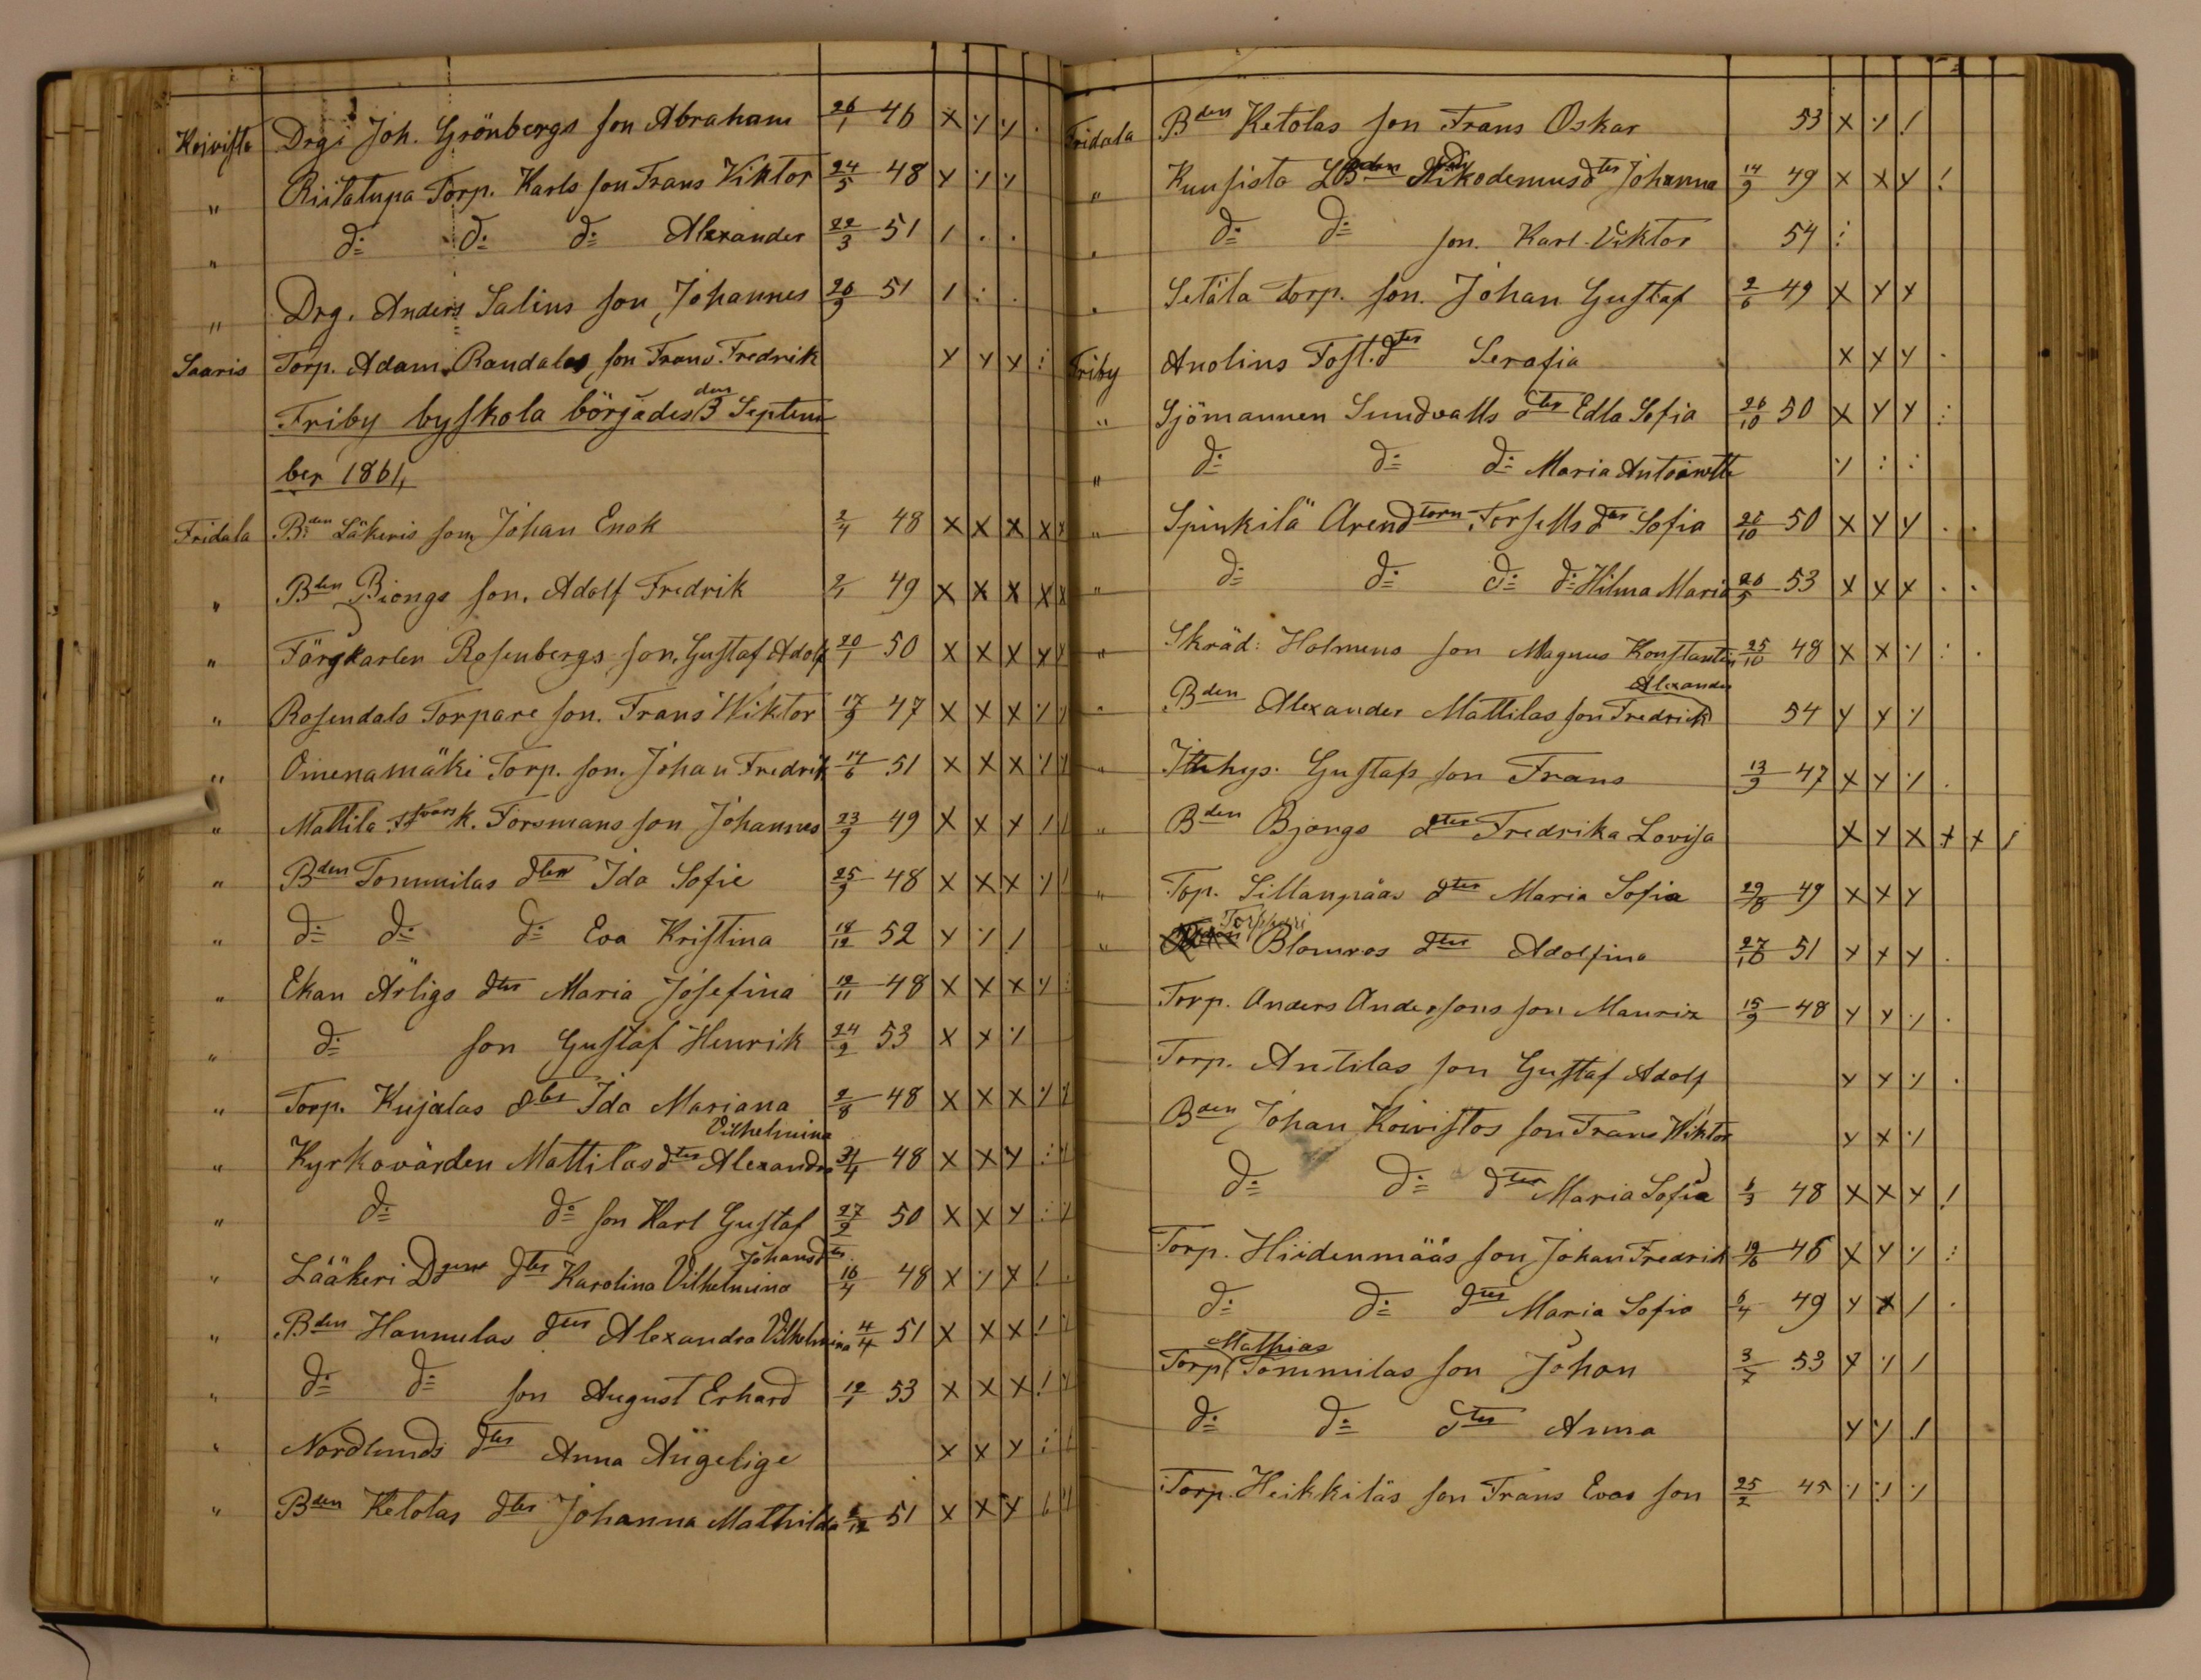 Koivisto Drg: Joh. Grönbergs son Abraham 26/1 46 x ٪ ٪ .
" Riitatupa Torp. Karls son Frans Viktor 24/5 48 x ٪ ٪
" d:o d:o d:o Alexander 22/3 51 / . .
" Drg. Anders Salins son Johannes 20/9 51 / : .
Saaris Torp. Adam Randalas son Frans Fredrik x x x :
Friby byskola börjades den 3 Septem
ber 1861,
Fridala B:den Läkeris son Johan Enok 2/4 48 x x x x x
" Bden Biongs son. Adolf Fredrik 2/1 49 x x x x x
" Färgkarlen Rosenbergs son. Gustaf Adolf 20/1 50 x x x x
" Rosendals Torpare son. Frans Wiktor 17/9 47 x x x ٪
" Omenamäki Torp. son. Johan Fredrik 14/6 51 x x x ٪
" Mattila k. Forsmans son Johannes 23/9 49 x x x /
" Bden Tommilas dter Ida Sofie 25/9 48 x x x ٪
" d:o d:o d:o Eva Kristina 18/12 52 x ٪ /
" Ekan Ärligs dter Maria Josefina 12/11 48 x x x ٪
" d:o son Gustaf Henrik 24/2 53 x x ٪
" Torp. Kujalas dter Ida Mariana 2/8 48 x x x ٪
Vilhelmina
" Kyrkovärden Mattilas dter Alexandra 48 x x x :
" d:o d:o son Karl Gustaf 27/2 50 x x x :
Johans dr
" Lääkeri dter Karolina Vilhelmina 16/4 48 x ٪ x !
" Bden Hannulas dter Alexandra Vilhelmina 4/4 51 x x x !
" d:o d:o son August Erhard 12/1 53 x x x !
" Nordlunds dter Anna Angelige x x x :
" Bden Ketolas dter Johanna Mathilda 6/12 51 x x x
Fridala Bden Ketolas son Frans Oskar 53 x ٪ /
" Kuusisto Nikodemus dter Johanna 14/9 49 x x x !
" d:o d:o son. Karl Viktor 54 :
" Setäla torp. son. Johan Gustaf 2/6 49 x x x
Friby Anolins Fost. dter Serafia x x x .
" Sjömannen Sundvalls dter Edla Sofia 26/10 50 x x x :
" d:o d:o d:o Maria Antoinette ٪ : :
" Spinkilä Arendtorn Forsells dter Sofia 50 x x x . .
" d:o d:o d:o d:o Hilma Maria 53 x x x . .
" Skräd: Holmens son Magnus Konstantin 25/10 48 x x ٪ : .
Alexander
" Bden Alexander Mattilas son Fredrik 54 x x ٪
" Itthys. Gustafs son Frans 13/9 47 x x ٪ .
" Bden Bjongs dter Fredrika Lovisa x x x x x /
" Top. Sillanpääs dter Maria Sofia 49 x x x
Torppari
" Blomros dter Adolfina 27/10 51 x x x .
Torp. Anders Andersons son Mauriz 15/9 48 x x ٪ .
Torp. Antilas son Gustaf Adolf x x ٪ .
Bden Johan Koivistos son Frans Wiktor x x ٪
d:o d:o dter Maria Sofia 6/3 48 x x x !
Torp. Hiidenmääs son Johan Fredrik 46 x x ٪ :
d:o d:o dter Maria Sofia 6/4 49 x x / .
Mathias
Torp. Tommilas son Johan 3/7 53 x ٪ /
d:o d:o dter Anna x ٪ /
Torp. Heikkiläs son Frans Evas son 25/2 45 ٪ ٪ ٪